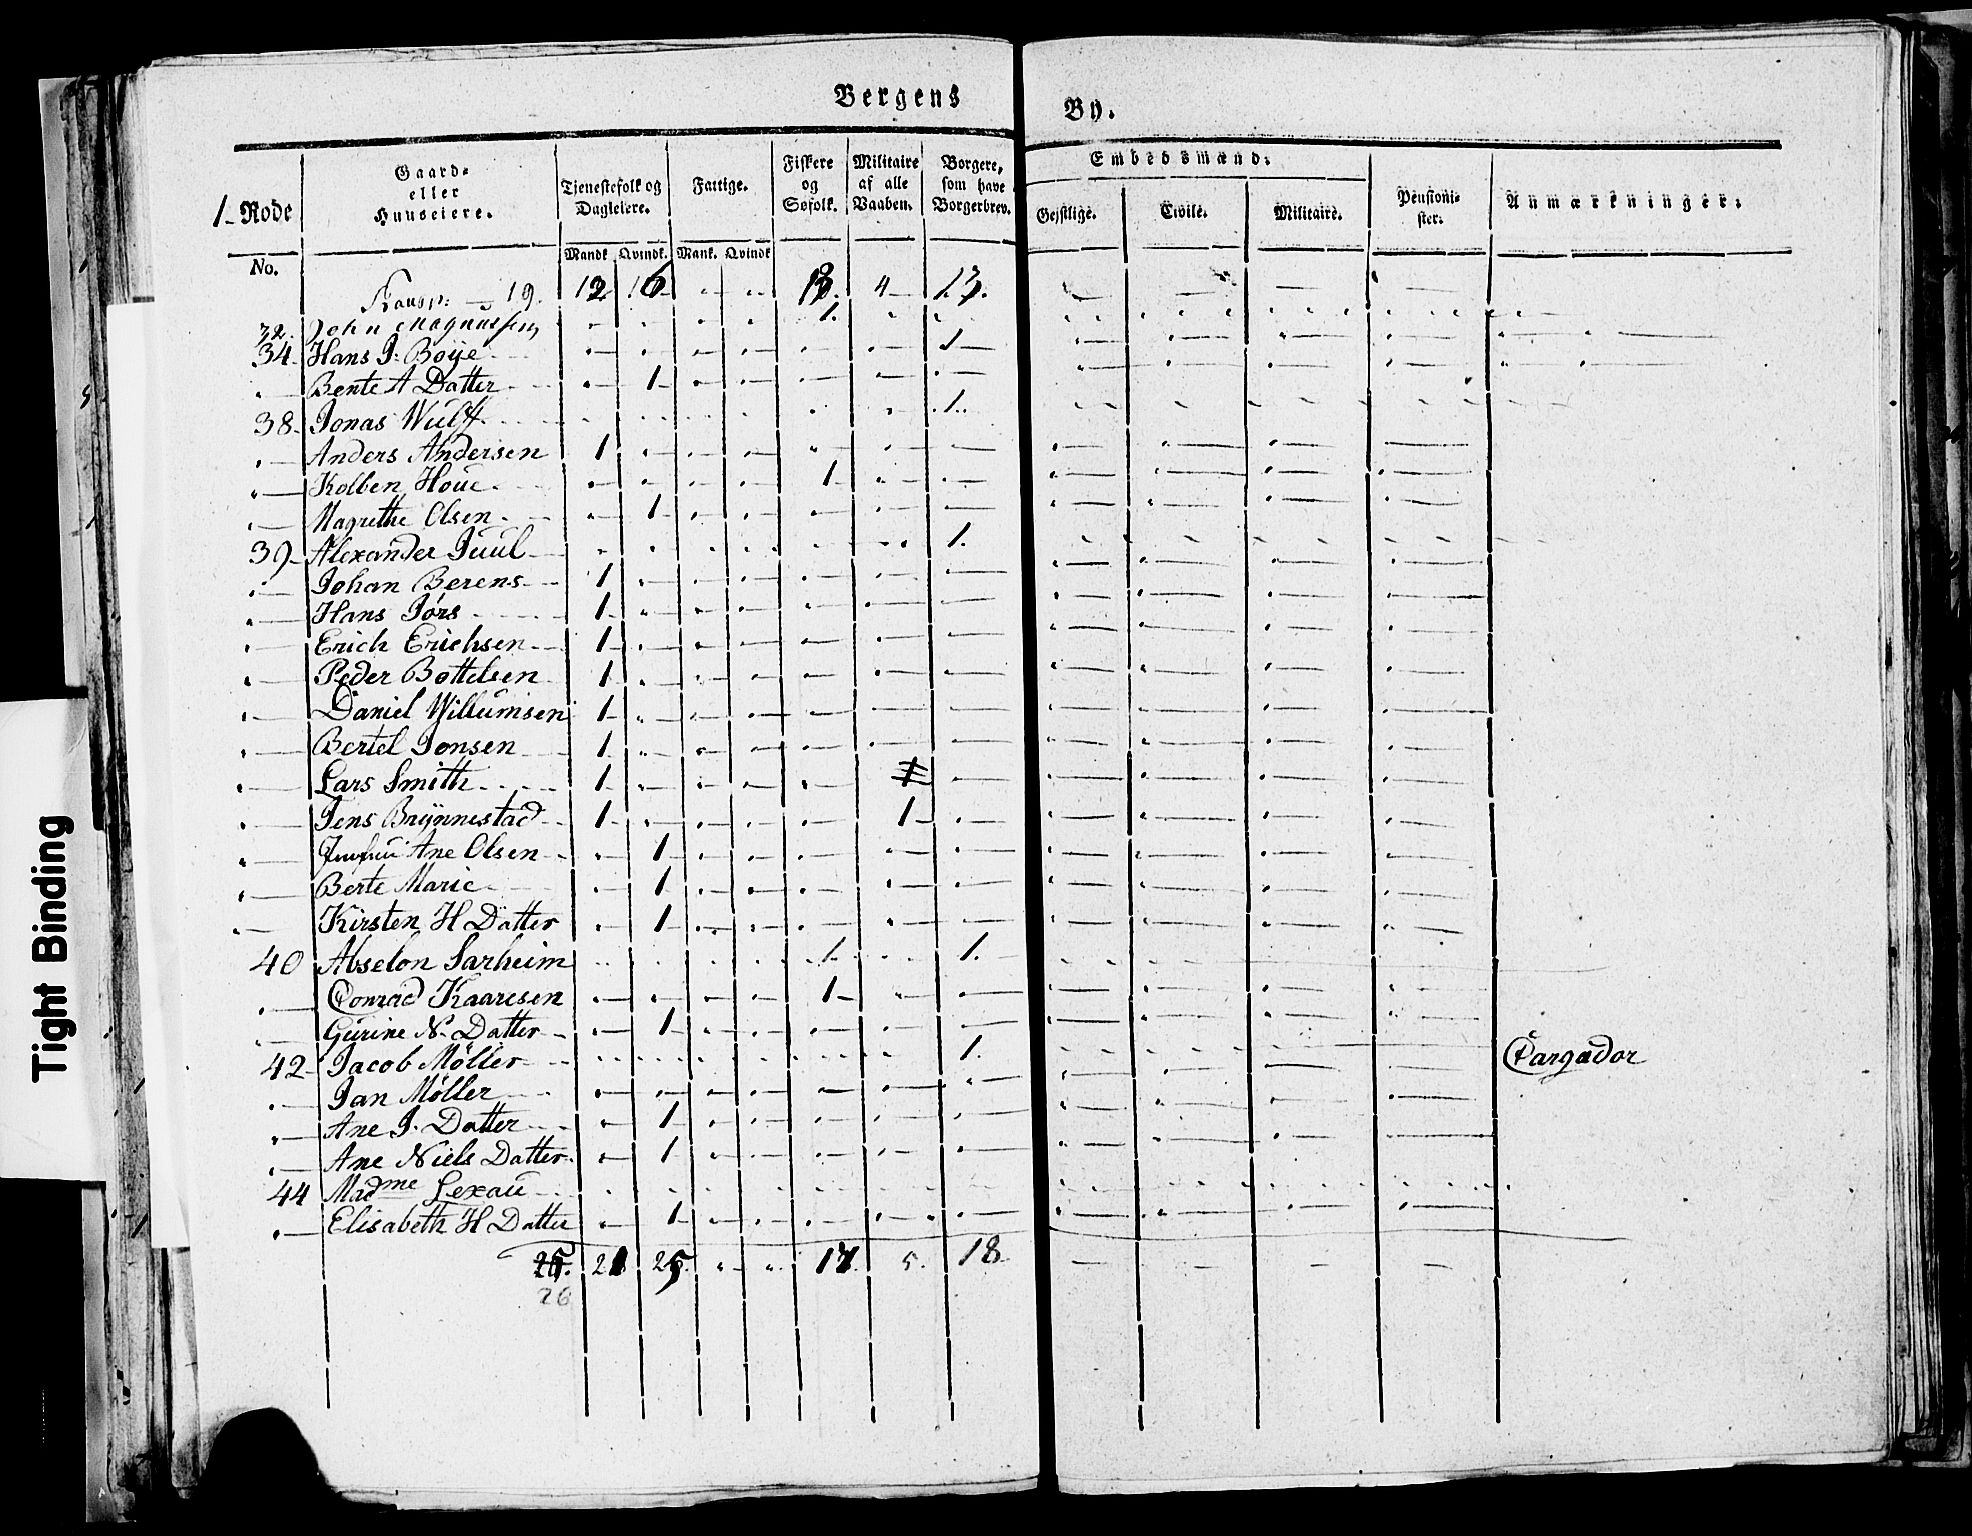 Bergens By.
1- Rode
Gaard- eller Huuseiere.
Tjenestefolk og Dagleiere.
Fattige.
Fiskere og Søfolk.
Militaire af alle Vaaben.
Borgere, som have Borgerbrev.
Embedsmænd:
Gejstlige.
Civile.
Militaire.
Pensionister.
Anmærkninger.
No.
Mandk. Qvindk. Mank. Qvindk
Transp: — 19. 12 16 " " 13. 4 — 13.
32. John Magnussen 1.
34. Hans J. Boye 1
" Bente A Datter 1
38. Jonas Wulff 1.
" Anders Andersen 1
" Kolben Houe 1
" Magrethe Olsen 1
39 Alexander Juul 1.
" Johan Berens 1
" Hans Jørs 1
" Erich Erichsen 1
" Peder Bottelsen 1
" Daniel Willumsen 1
" Bertel Jonsen 1
" Lars Smith 1
" Jens Brynnestad 1 1
" Jomfru Ane Olsen 1
" Berte Marie 1
" Kirsten H Datter 1
40 Abselon Sarheim 1. 1.
" Conrad Kaaresen 1
" Gurine N. Datter 1
42 Jacob Møller 1. Cargador
" Jan Møller
" Ane J. Datter 1
" Ane Niels Datter 1
44 Madme Lexau
" Elisabeth H Datter 1
25. 21 25. " " 17. 5. 18
26
Tight Binding